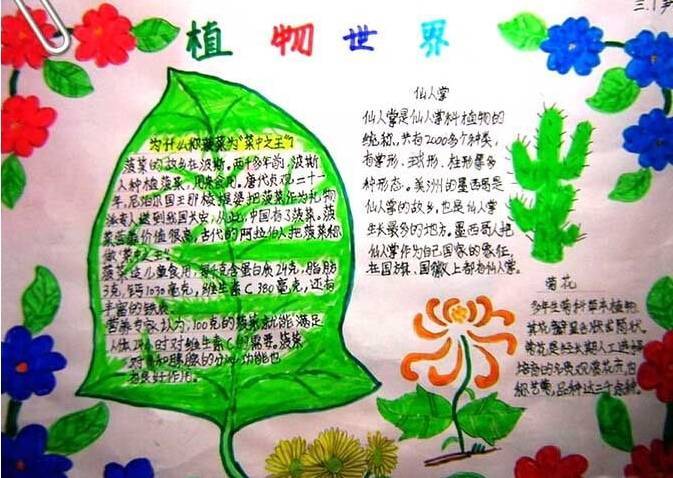 三.1
植物世界
为什么称菠菜为"菜中之王"?
菠菜的故乡在波斯。两千多年前,波斯
人种植菠菜,用来食用。唐代贞观二十一
年,尼泊尔国王那棱提婆把菠菜作为礼物
派专人送到我国长安,从此,中国有了菠菜。菠
菜营养价值很高,古代的阿拉伯人把菠菜称
做"菜中之王"。
菠菜 儿童食用,每千克含蛋白质24克,脂肪
3克,钙1030毫克,维生素C 380毫克,还有
丰富的铁质。
营养专家认为,100克的菠菜就能满足
人体24小时对维生素C的需要。菠菜
对胃和胰腺的分泌功能也
有良好作用。
仙人掌
仙人掌是仙人掌科植物的
统称,共有2000多个种类,
有掌形、球形、柱形等多
种形态。美洲的墨西哥是
仙人掌的故乡,也是仙人掌
生长最多的地方。墨西哥人把
仙人掌作为自己国家的象征,
在国旗、国徽上都有仙人掌。
菊花
多年生菊科草本植物,
其花瓣呈舌状或筒状。
菊花是经长期人工选择
培育的名贵观赏花卉,也
称艺菊,品种达三千余种。